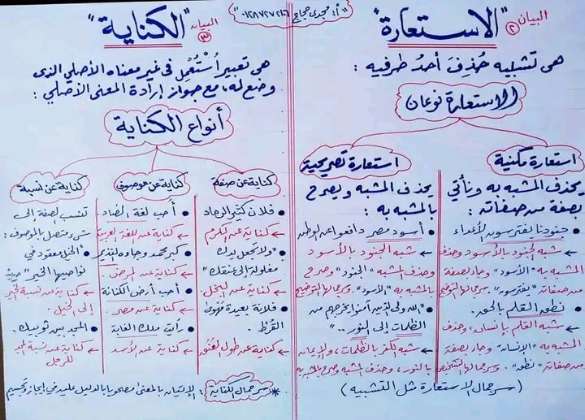 البيان
٢
"الاستعارة"
هي تشبيه حُذِفَ أحدُ طرفيه :
الاستعارة نوعان
استعارة مكنية
يحذف المشبه به ونأتي
بصفة من صفاته :
جنودنا يفترسون الأعداء
شبه الجنود بالأسود وحذف
المشبه به "الأسود" وجاء بصفة
نطق القلم بالحق.
شبه القلم بإنسان، وحذف
المشبه به "الإنسان" وجاء بصفة
من صفاته "نطق".
استعارة تصريحية
يحذف المشبه ويصرح
بالمشبه به :
أسود مصر دافعوا عن الوطن
شبه الجنود بالأسود
وحذف المشبه "الجنود" وصرح
"الله ولي الذين آمنوا يخرجهم من
الظلمات إلى النور.."
شبه الكفر بالظلمات، والإيمان
بالنور، وحذف المشبه وصرح بالمشبه به
(سر جمال الاستعارة مثل التشبيه)
أ. مجدي
البيان
٣
"الكناية"
هي تعبير استُعْمِل في غير معناه الأصلي الذي
وضع له، مع جواز إرادة المعنى الأصلي :
أنواع الكناية
كناية عن صفة
فلان كثير الرماد
كناية عن الكرم
"ولا تجعل يدك
مغلولة إلى عنقك"
كناية عن البخل
فلانة بعيدة مهوى
القرط.
كناية عن طول العنق
كناية عن موصوف
أحب لغة الضاد
كناية عن اللغة العربية
كناية عن المرض
أحب أرض الكنانة
كناية عن مصر
رأيت ملك الغابة
كناية عن الأسد
كناية عن نسبة
تنسب لصفة إلى
شيء متصل بالموصوف :
"الخيل معقود في
نواصيها الخير"
كناية عن نسبة الخير
إلى الخيل
المجد بين ثوبيك
كناية عن نسبة المجد
للرجل
سر جمال الكناية : الإتيان بالمعنى مصحوبا بالدليل عليه في إيجاز وتجسيم